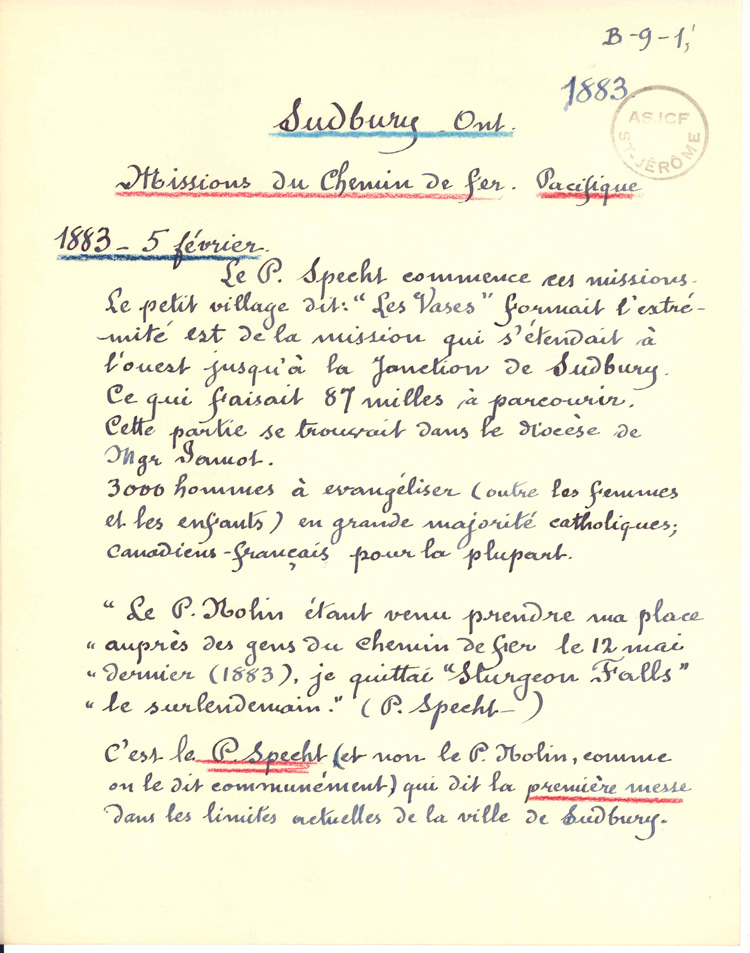 B-9-1,
1883
ASJCF
ST-JÉRÔME
Sudbury Ont.
Missions du Chemin de fer. Pacifique
1883 - 5 février.
Le P. Specht commence ces missions.
Le petit village dit: "Les Vases" formait l'extré-
mité est de la mission qui s'étendait à
l'ouest jusqu'à la Jonction de Sudbury.
Ce qui faisait 87 milles à parcourir.
Cette partie se trouvait dans le diocèse de
Mgr Jamot.
3000 hommes à evangéliser (outre les femmes
et les enfants) en grande majorité catholiques;
canadiens-français pour la plupart.
" Le P. Nolin étant venu prendre ma place
" auprès des gens du chemin de fer le 12 mai
" dernier (1883), je quittai "Sturgeon Falls"
" le surlendemain." (P. Specht-)
C'est le P. Specht (et non le P. Nolin, comme
on le dit communément) qui dit la première messe
dans les limites actuelles de la ville de Sudbury.